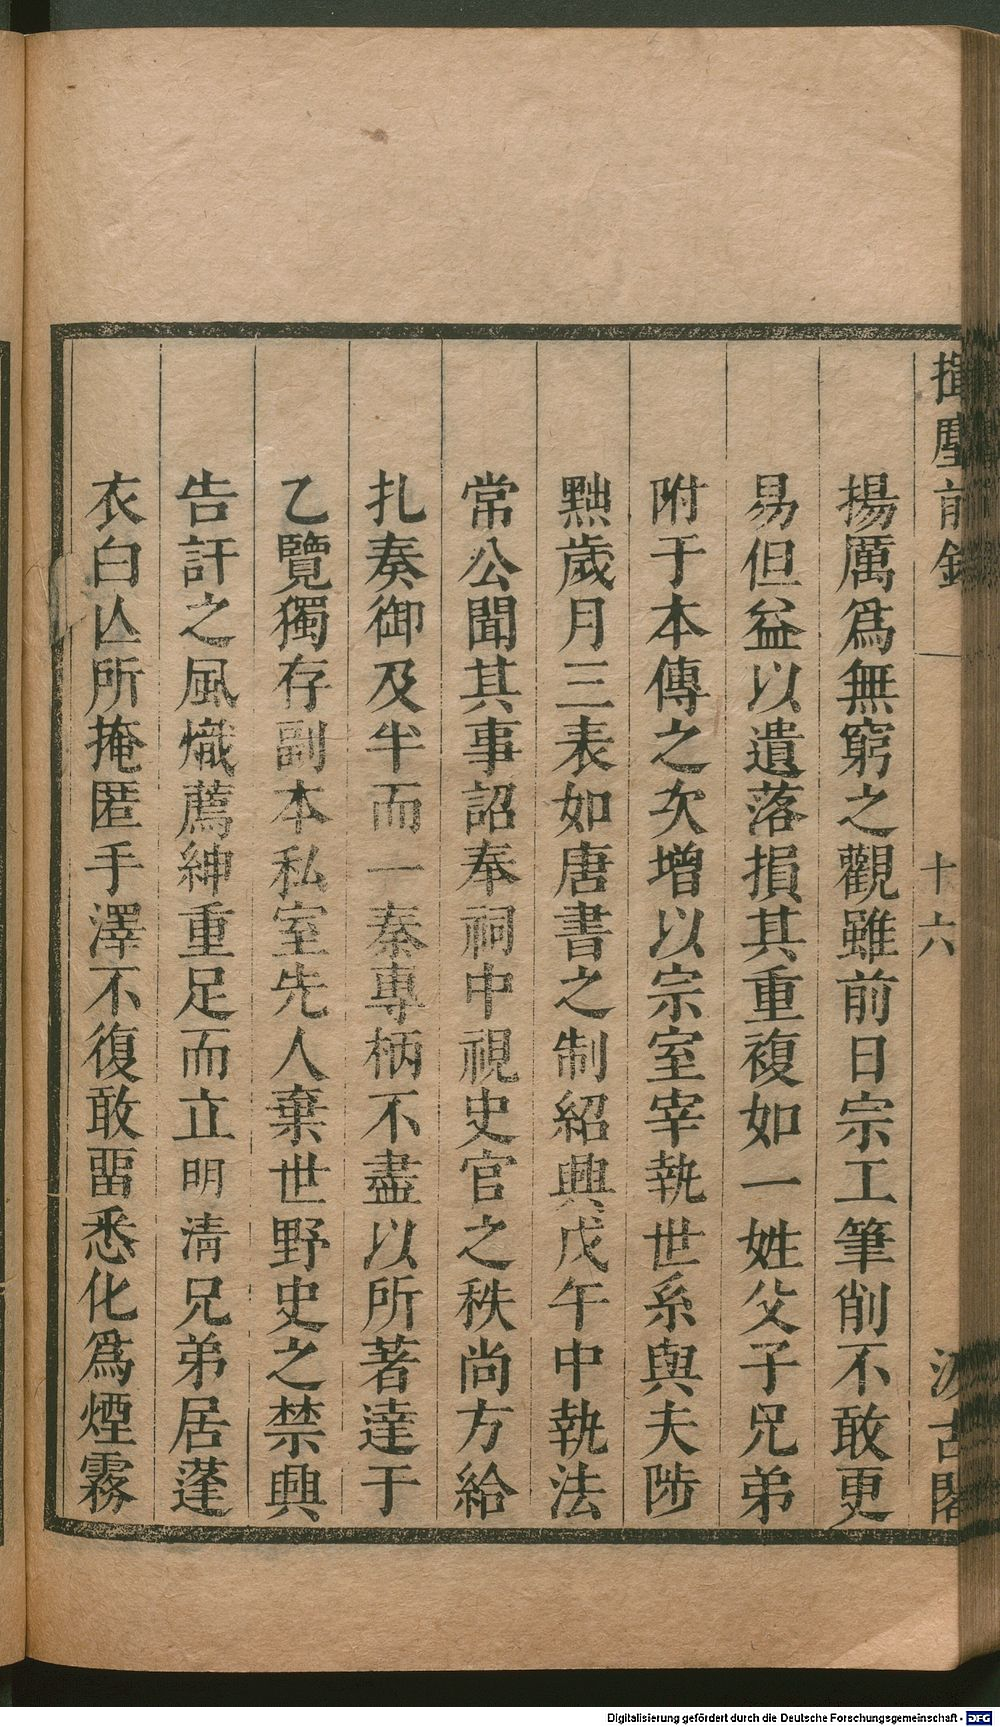 揮麈前錄 十六 汲古閣
揚厲爲無窮之觀雖前日宗工筆削不敢更
易但益以遺落損其重複如一姓父子兄弟
附于本傳之次增以宗室宰執世系與夫陟
黜歲月三表如唐書之制紹興戊午中執法
常公聞其事詔奉祠中視史官之秩尚方給
扎奏御及半而一秦專柄不盡以所著達于
乙覽獨存副本私室先人棄世野史之禁興
告訐之風熾薦紳重足而立明清兄弟居蓬
衣白亾所掩匿手澤不復敢畱悉化爲煙霧
Digitalisierung gefördert durch die Deutsche Forschungsgemeinschaft - DFG